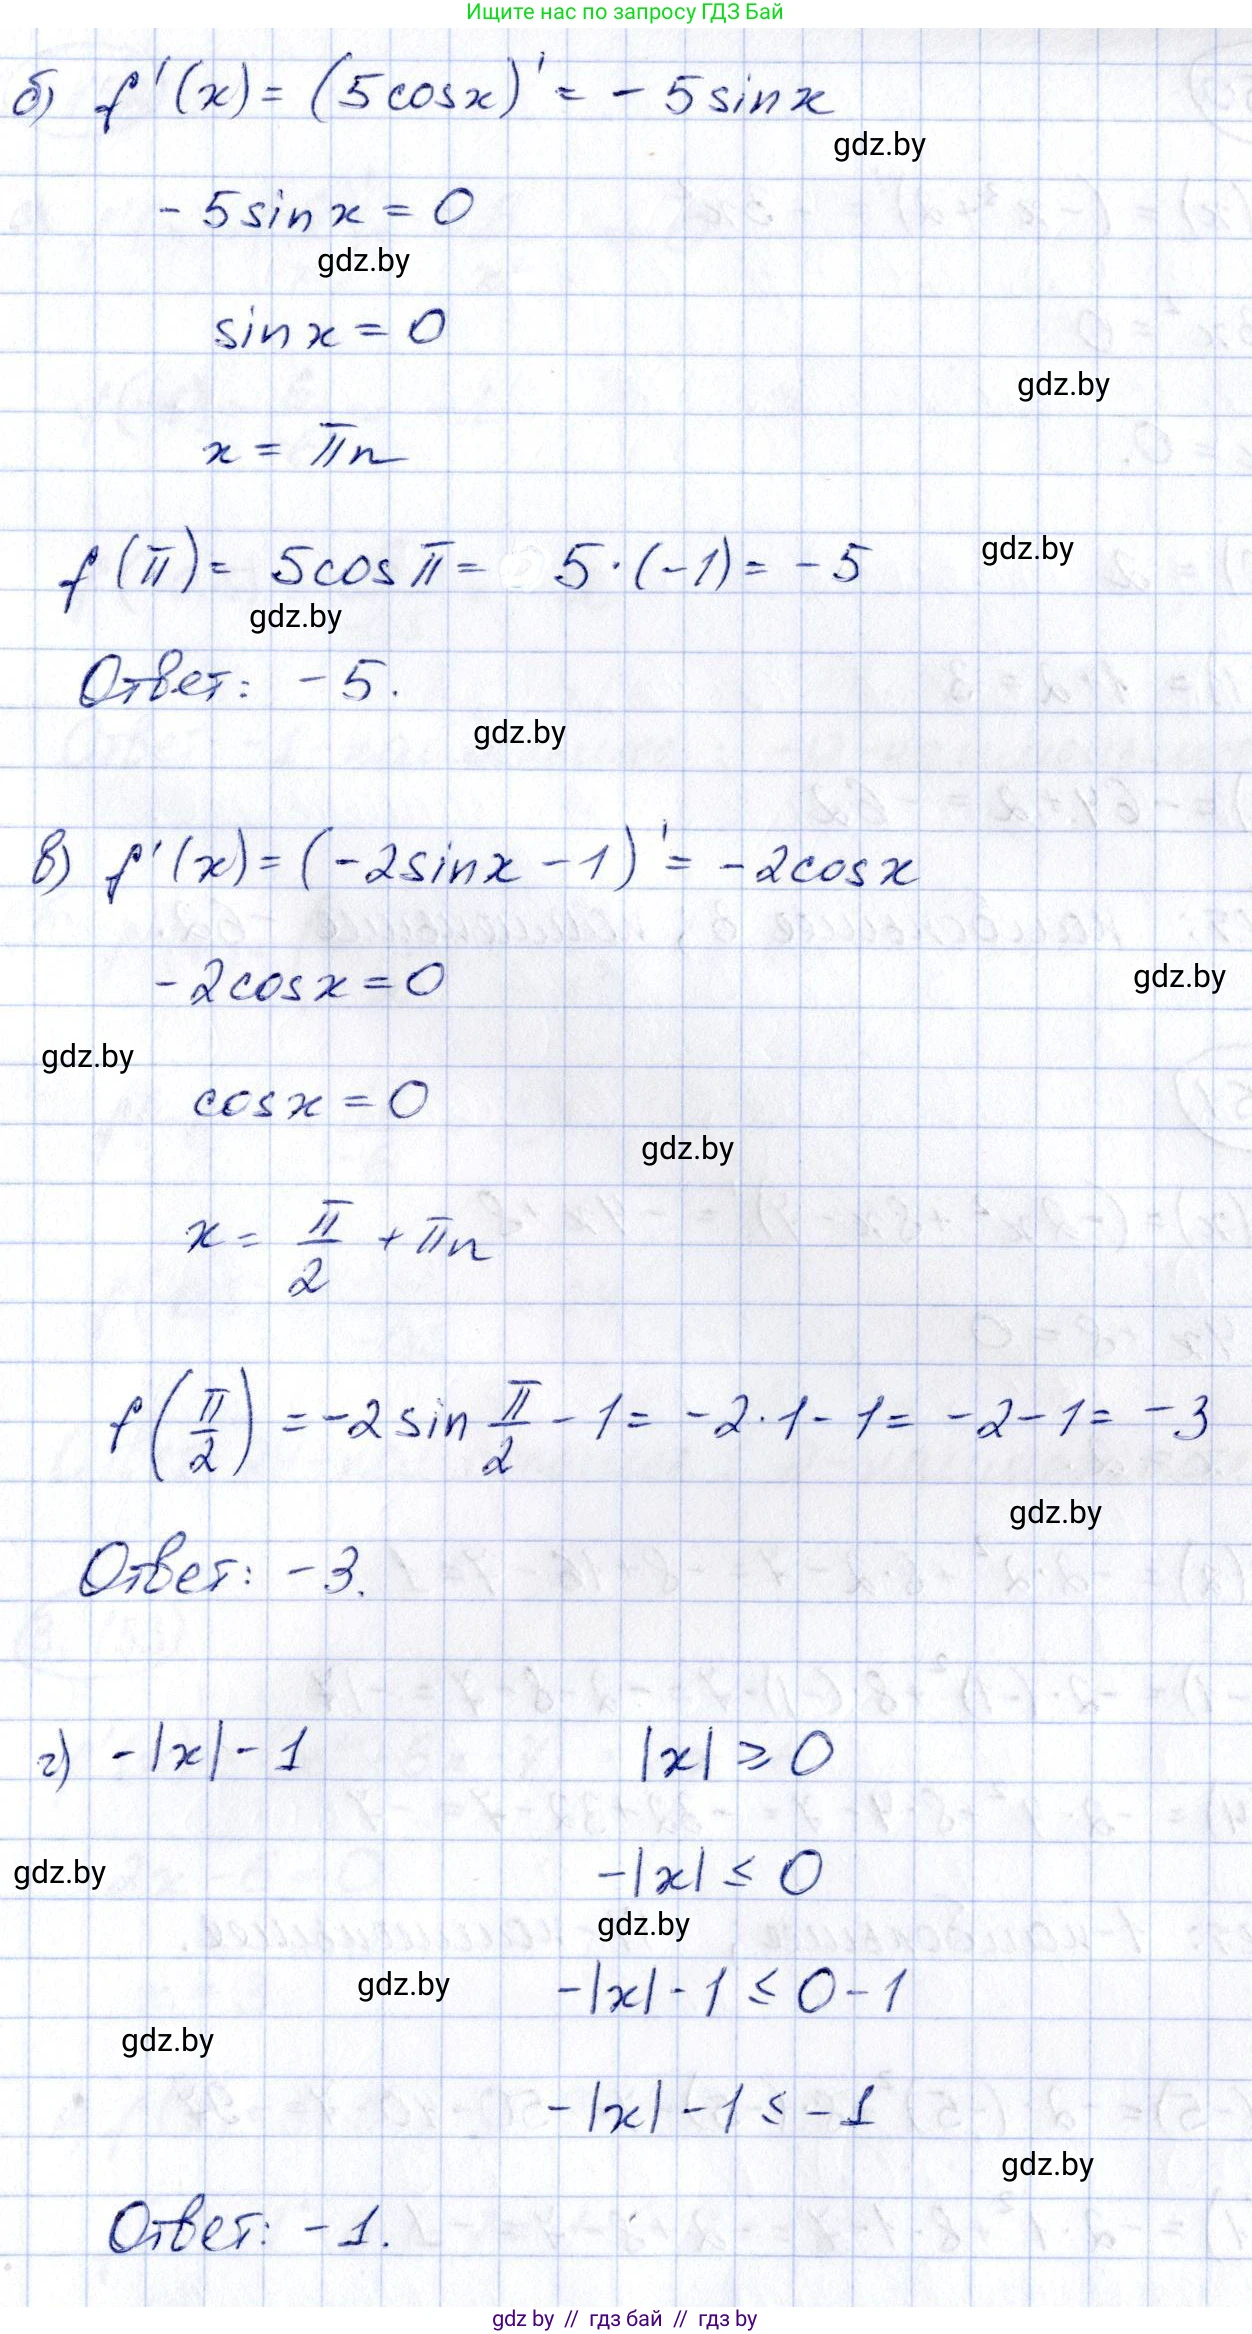 Ищите нас по запросу ГДЗ Бай
б) f'(x) = (5cosx)' = - 5sinx
gdz.by
- 5sinx = 0
gdz.by
sinx = 0
gdz.by
x = πn
f(π) = 5cosπ = 5·(-1) = -5
gdz.by
gdz.by
Ответ: -5.
gdz.by
в) f'(x) = (-2sinx - 1)' = -2cosx
-2cosx = 0
gdz.by
gdz.by
cosx = 0
gdz.by
x = π/2 + πn
f(π/2) = -2sin π/2 - 1 = -2·1 - 1 = -2 - 1 = -3
gdz.by
Ответ: -3.
г) -|x| - 1 |x| ≥ 0
gdz.by -|x| ≤ 0
gdz.by
gdz.by -|x| - 1 ≤ 0 - 1
gdz.by
-|x| - 1 ≤ -1
gdz.by
Ответ: -1.
gdz by // гдз бай // гдз by